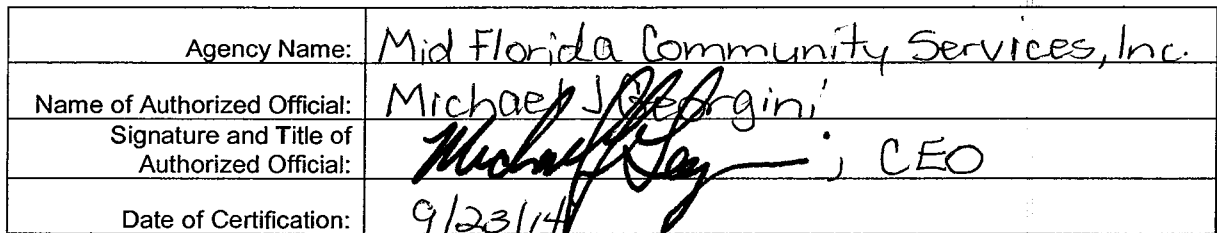 Agency Name: Mid Florida Community Services, Inc.
Name of Authorized Official: Michael J Georgini
Signature and Title of
Authorized Official: ; CEO
Date of Certification: 9/23/14